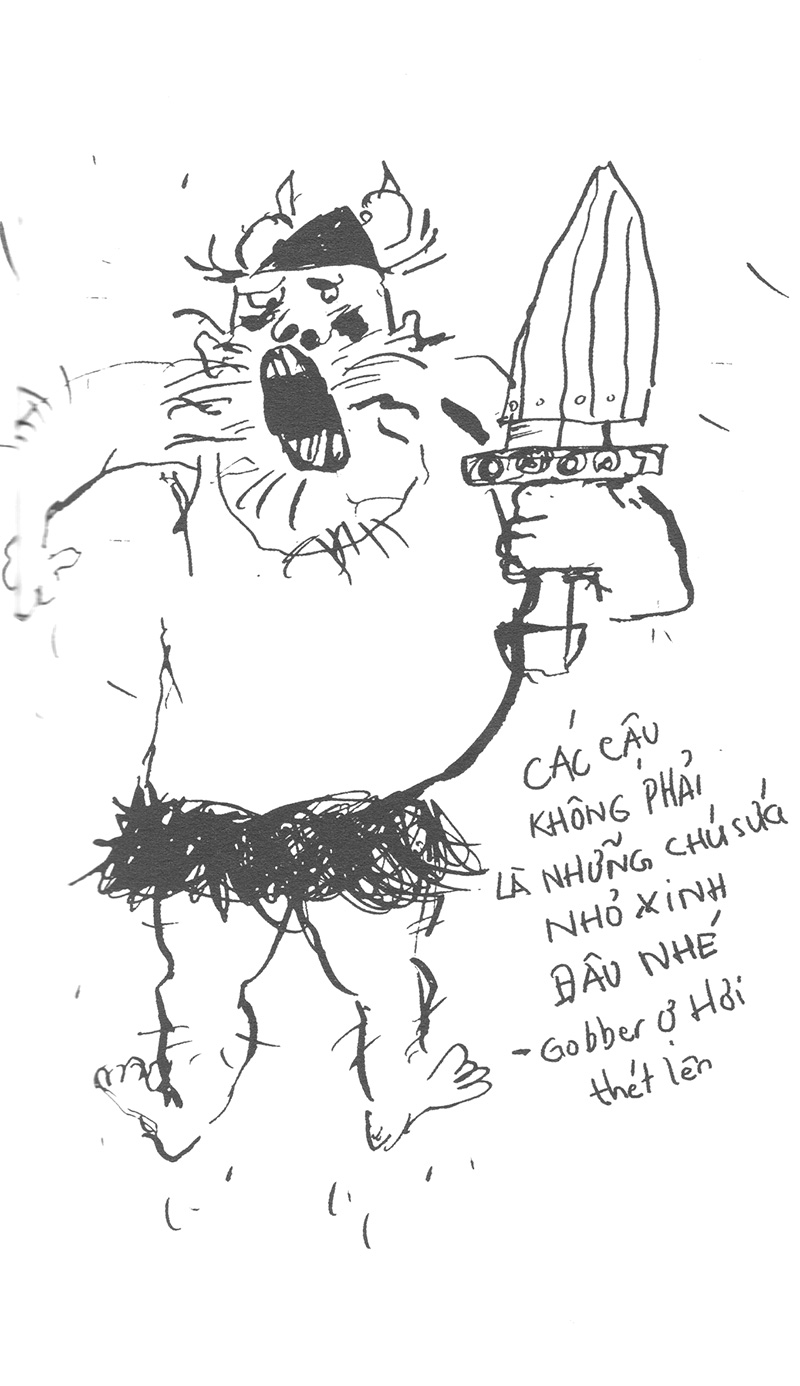 CÁC CẬU
KHÔNG PHẢI
LÀ NHỮNG CHÚ SỨA
NHỎ XINH
ĐÂU NHÉ
- Gobber Ợ Hơi
thét lên